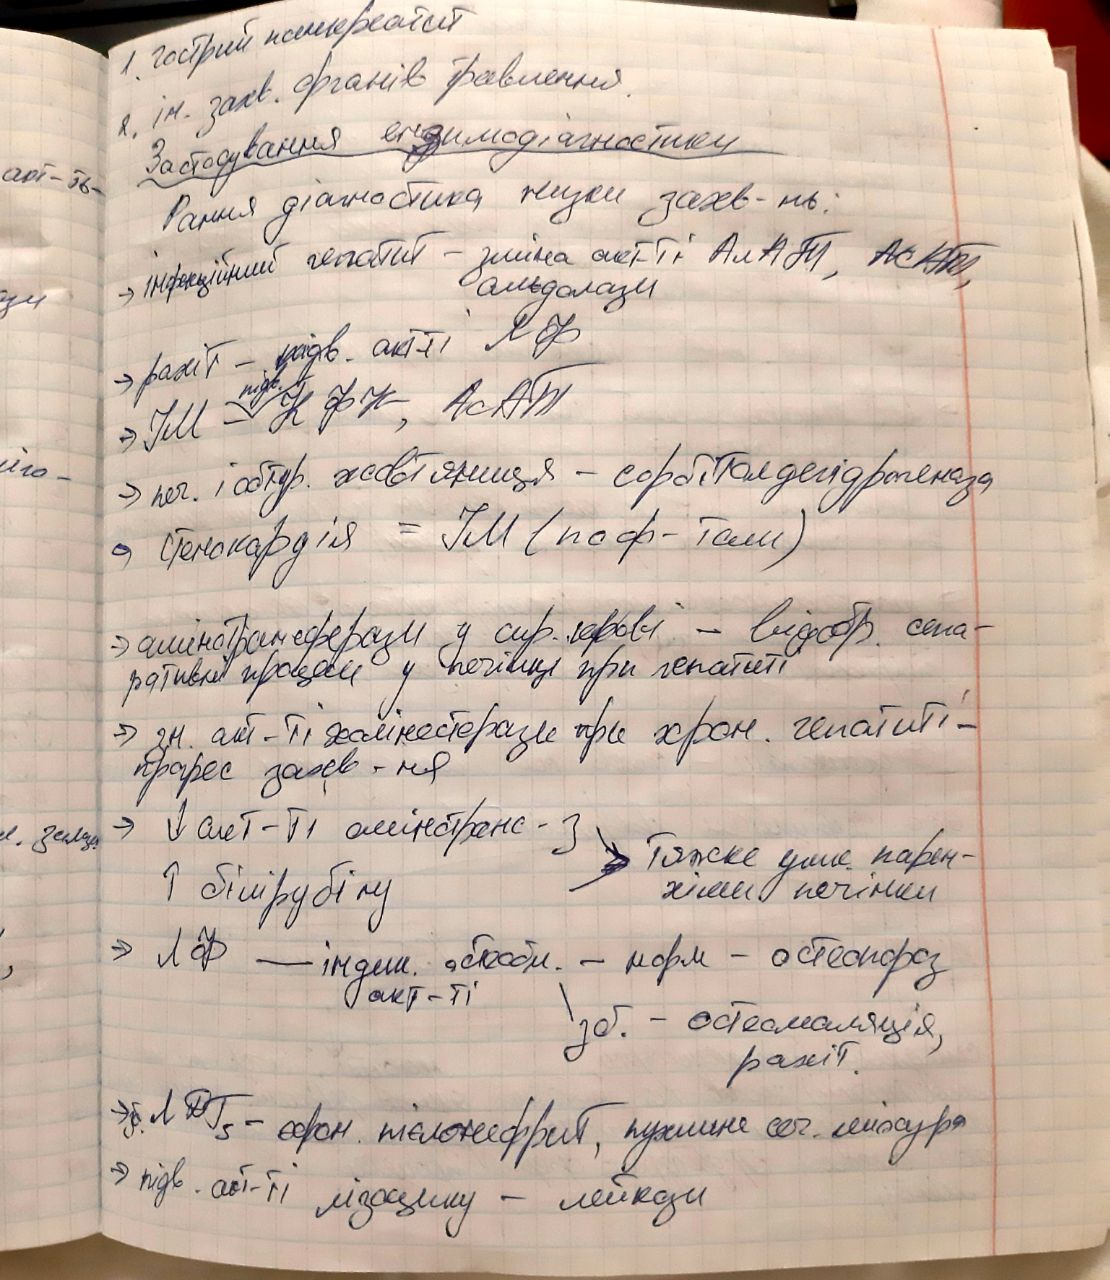 1. гострий панкреатит
2. ін. захв. органів травлення.
Застосування ензимодіагностики
Рання діагностика низки захв-нь:
→ інфекційний гепатит – зміна акт-ті АлАТ, АсАТ,
альдолази
→ рахіт – підв. акт-ті ЛФ
підв.
→ ІМ – КФК, АсАТ
→ печ. і обтур. жовтяниця – сорбітолдегідрогеназа
→ Стенокардія = ІМ (поф-тали)
→ амінотрансферази у сир. крові – відобр. сепа-
ративні процеси у печінці при гепатиті
→ зн. акт-ті холінестерази при хрон. гепатиті –
прогрес захв-ня
→ ↓ акт-ті амінотранс-з
↑ білірубіну
Тяжке ушк. парен-
хіми печінки
→ ЛФ — індик. остеобл. – норм – остеопороз
акт-ті
зб. – остеомаляція,
рахіт.
→ ЛДГ5 – хрон. пієлонефрит, пухлини сеч. міхура
→ підв. акт-ті лізоциму – лейкози
акт-ть